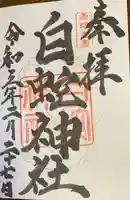 奉拝
白蛇神社
令和三年二月二十七日